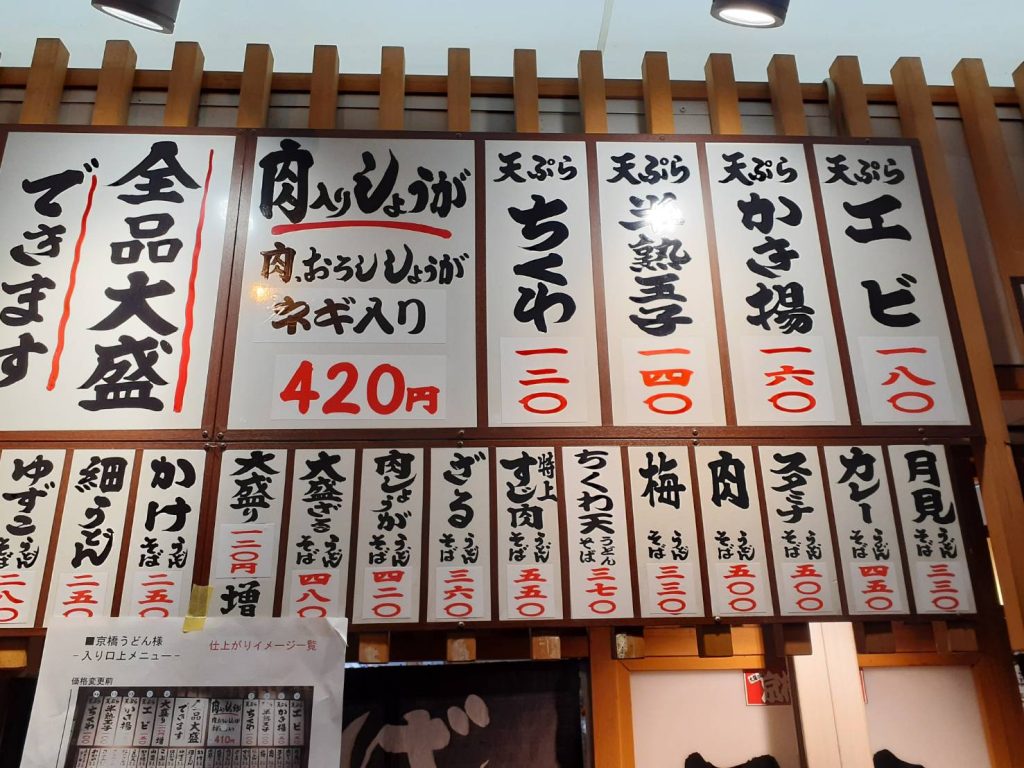 全品大盛
できます
肉入りしょうが
肉、おろししょうが
ネギ入り
420円
天ぷら
ちくわ
一二〇
天ぷら
半熟玉子
一四〇
天ぷら
かき揚
一六〇
天ぷら
エビ
一八〇
月見うどんそば
三三〇
カレーうどんそば
四五〇
スタミナうどんそば
五〇〇
肉うどんそば
五〇〇
梅うどんそば
三三〇
ちくわ天うどんそば
三七〇
特上すじ肉うどんそば
五五〇
ざるうどんそば
三六〇
肉しょうがうどんそば
四二〇
大盛ざるうどんそば
四八〇
大盛り
一二〇円
増
かけうどんそば
二五〇
細うどん
二五〇
ゆずこ
そば
二八〇
■京橋うどん様
-入り口上メニュー-
仕上がりイメージ一覧
価格変更前